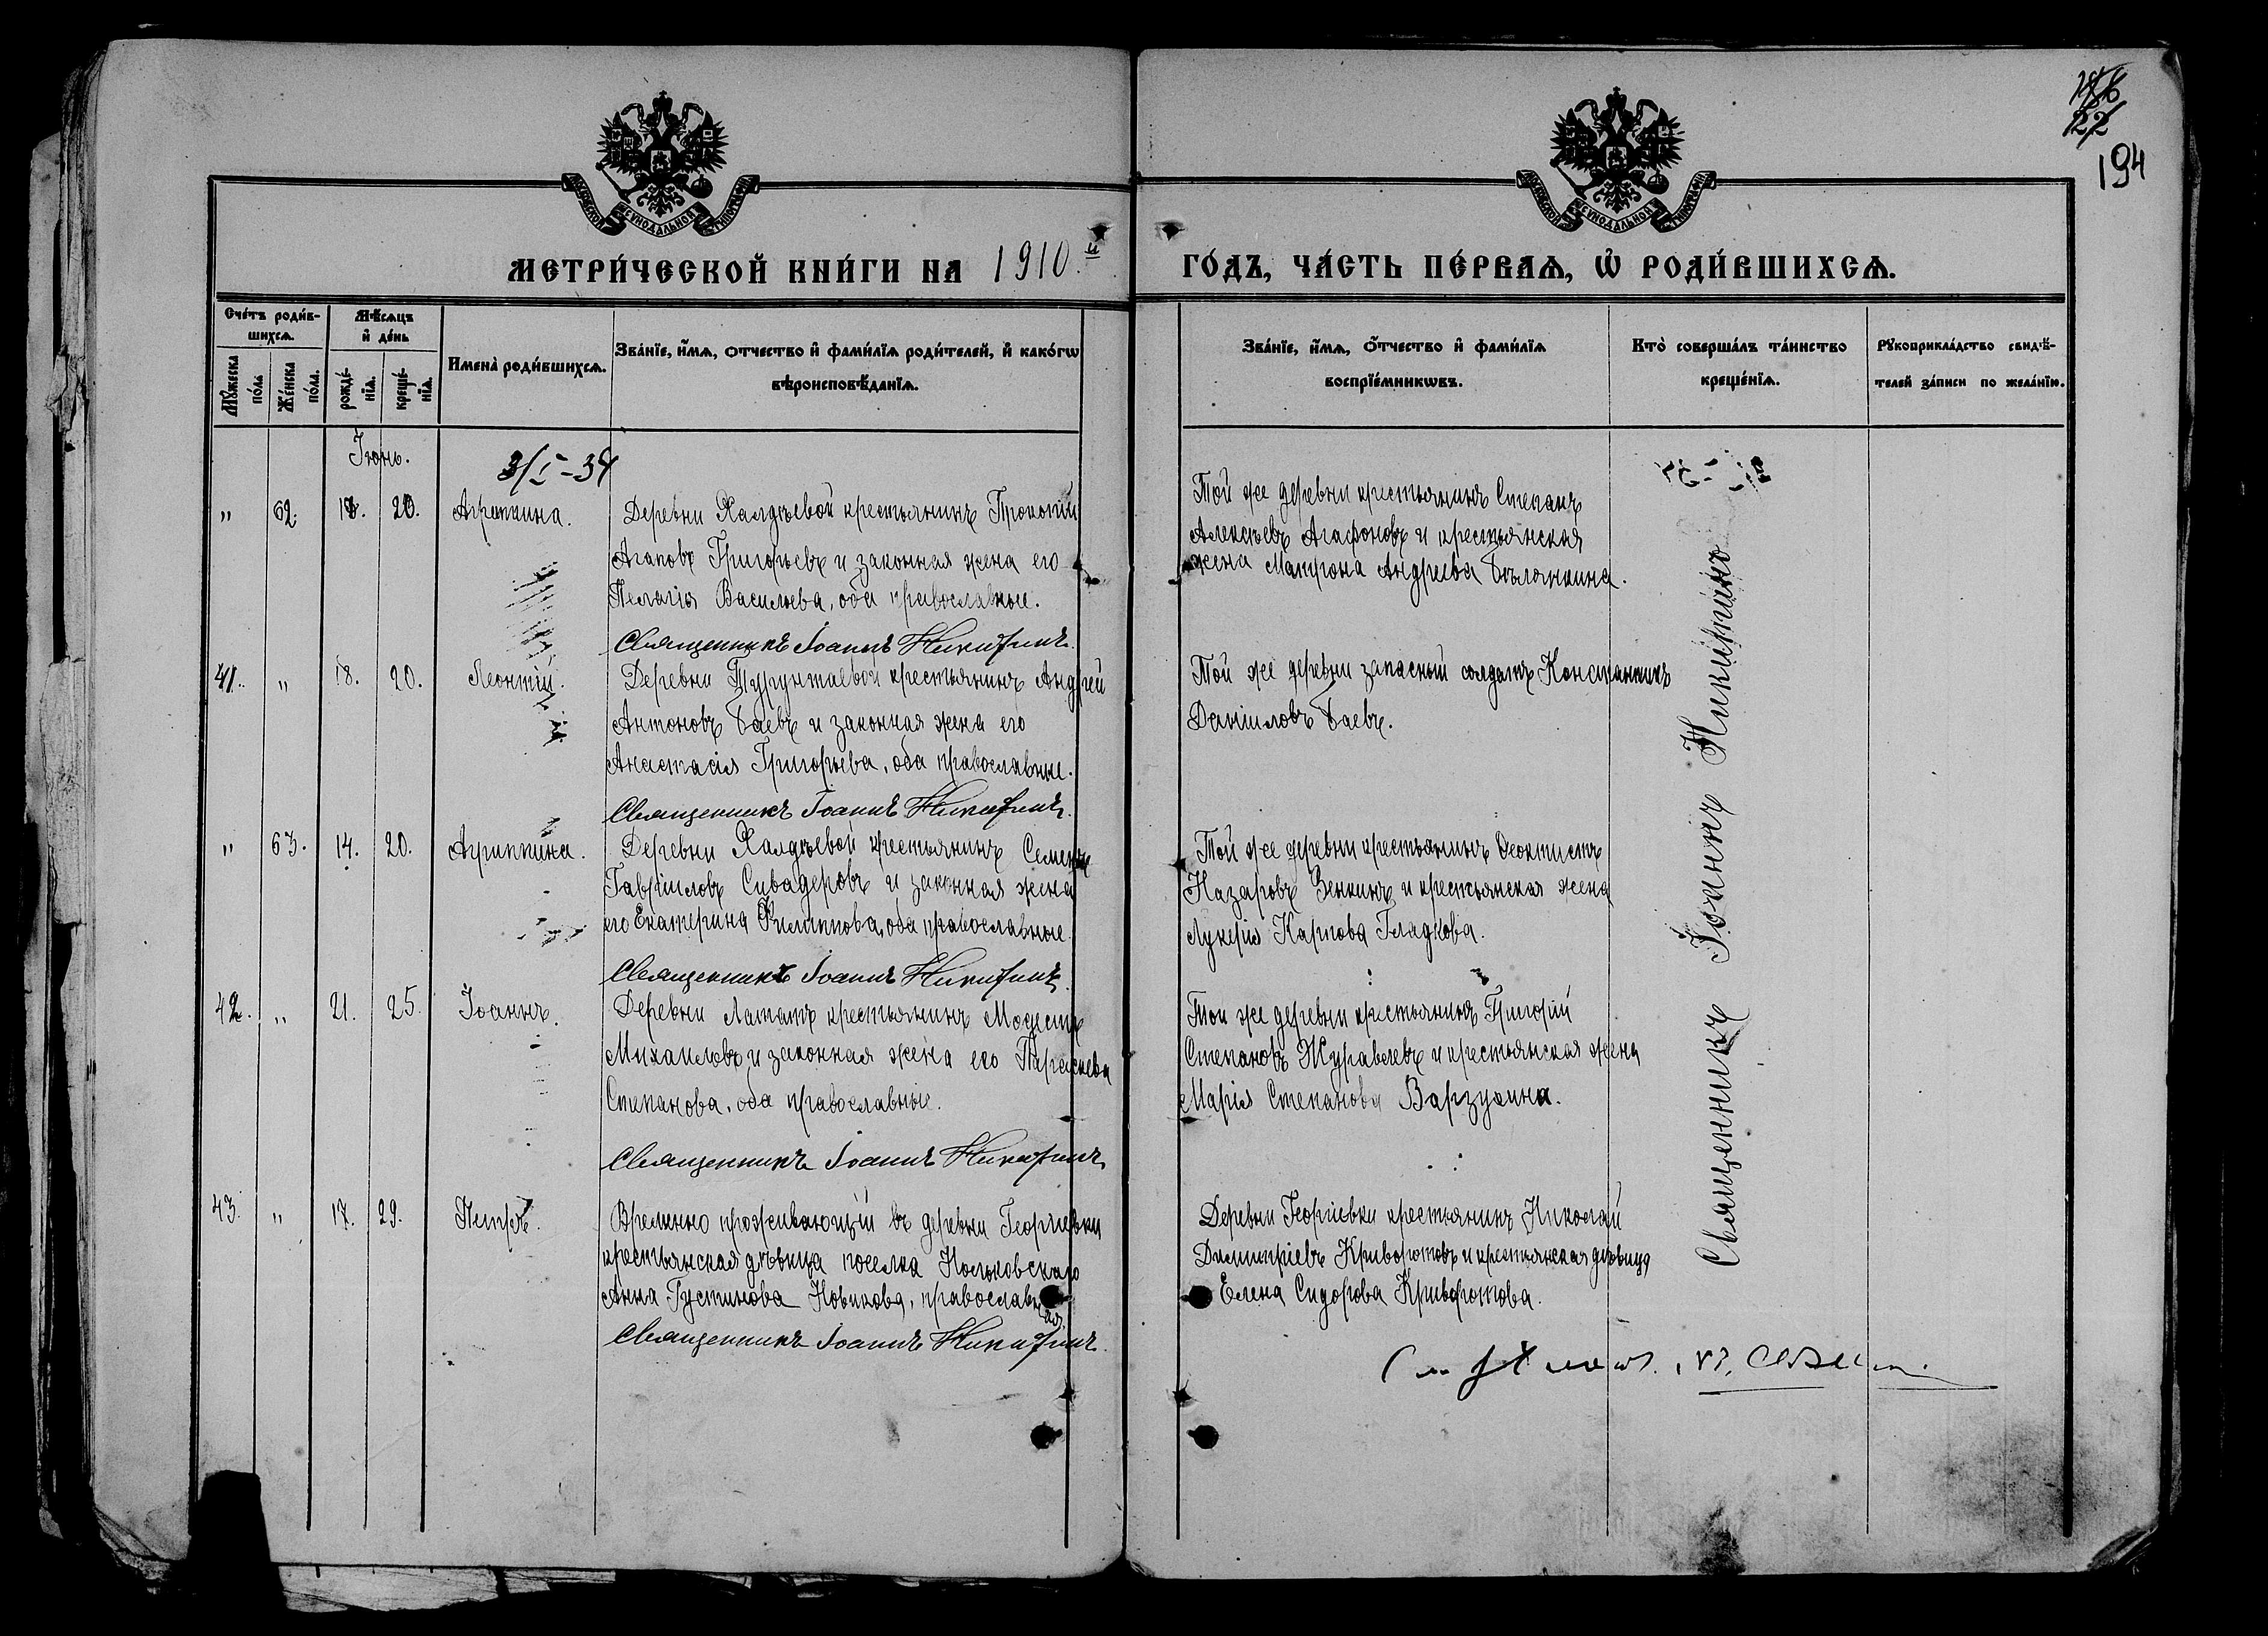 146
122
194
МОСКОВСКОЙ СѴНОДАЛЬНОЙ ТИПОГРАФІИ
МОСКОВСКОЙ СѴНОДАЛЬНОЙ ТИПОГРАФІИ
МЕТРИ́ЧЕСКОЙ КНИ́ГИ НА 1910.й ГО́ДЪ, ЧА́СТЬ ПЕ́РВАѦ, Ѡ҆ РОДИ́ВШИХСѦ.
Сче́тъ роди́в-
шихсѧ.
Мꙋ́жеска
по́ла.
Же́нска
по́ла.
Мѣ́сѧцъ
и҆ де́нь
рожде́-
нїѧ.
креще́-
нїѧ.
Имена̀ роди́вшихсѧ.
Зва́нїе, и҆́мѧ, ѻ҆́тчество и҆ фами́лїѧ роди́телей, и҆ како́гѡ
вѣроисповѣ́данїѧ.
Зва́нїе, и҆́мѧ, ѻ҆́тчество и҆ фами́лїѧ
воспрїе́мникѡвъ.
Кто̀ соверша́лъ та́инство
креще́нїѧ.
Рꙋкоприкла́дство свидѣ́-
телей за́писи по жела́нїю.
Іюнь.
3/I-34
" 62. 18. 20. Агрипина. Деревни Халдѣевой крестьянинъ Прокопій
Агаповъ Григорьевъ и законная жена его
Пелагія Васильева, оба православные.
Священникъ Іоаннъ Никитинъ.
Той же деревни крестьянинъ Степанъ
Алексѣевъ Агафоновъ и крестьянская
жена Матрона Андреева Бѣлянкина.
41. " 18. 20. Леонтій. Деревни Турунтаевой крестьянинъ Андрей
Антоновъ Баевъ и законная жена его
Анастасія Григорьева, оба православные.
Священникъ Іоаннъ Никитинъ.
Той же деревни запасный солдатъ Константинъ
Даніиловъ Баевъ.
" 63. 14. 20. Агриппина. Деревни Халдѣевой крестьянинъ Семенъ
Гавріиловъ Сивадеровъ и законная жена
его Екатерина Филиппова, оба православные.
Священникъ Іоаннъ Никитинъ.
Той же деревни крестьянинъ Ѳеоктистъ
Назаровъ Зенкинъ и крестьянская жена
Лукерія Карпова Гладкова.
42. " 21. 25. Іоаннъ. Деревни Лататъ крестьянинъ Модестъ
Михаиловъ и законная жена его Параскева
Степанова, оба православные.
Священникъ Іоаннъ Никитинъ
Той же деревни крестьянинъ Григорій
Степановъ Журавлевъ и крестьянская жена
Марія Степанова Варзухина.
43. " 17. 29. Петръ. Временно проживающій въ деревни Георгіевки
крестьянская дѣвица поселка Нольковскаго
Анна Густинова Новикова, православная.
Священникъ Іоаннъ Никитинъ.
Деревни Георгіевки крестьянинъ Николай
Димитріевъ Криворотовъ и крестьянская дѣвица
Елена Сидорова Криворотова.
Священникъ Іоаннъ Никитинъ